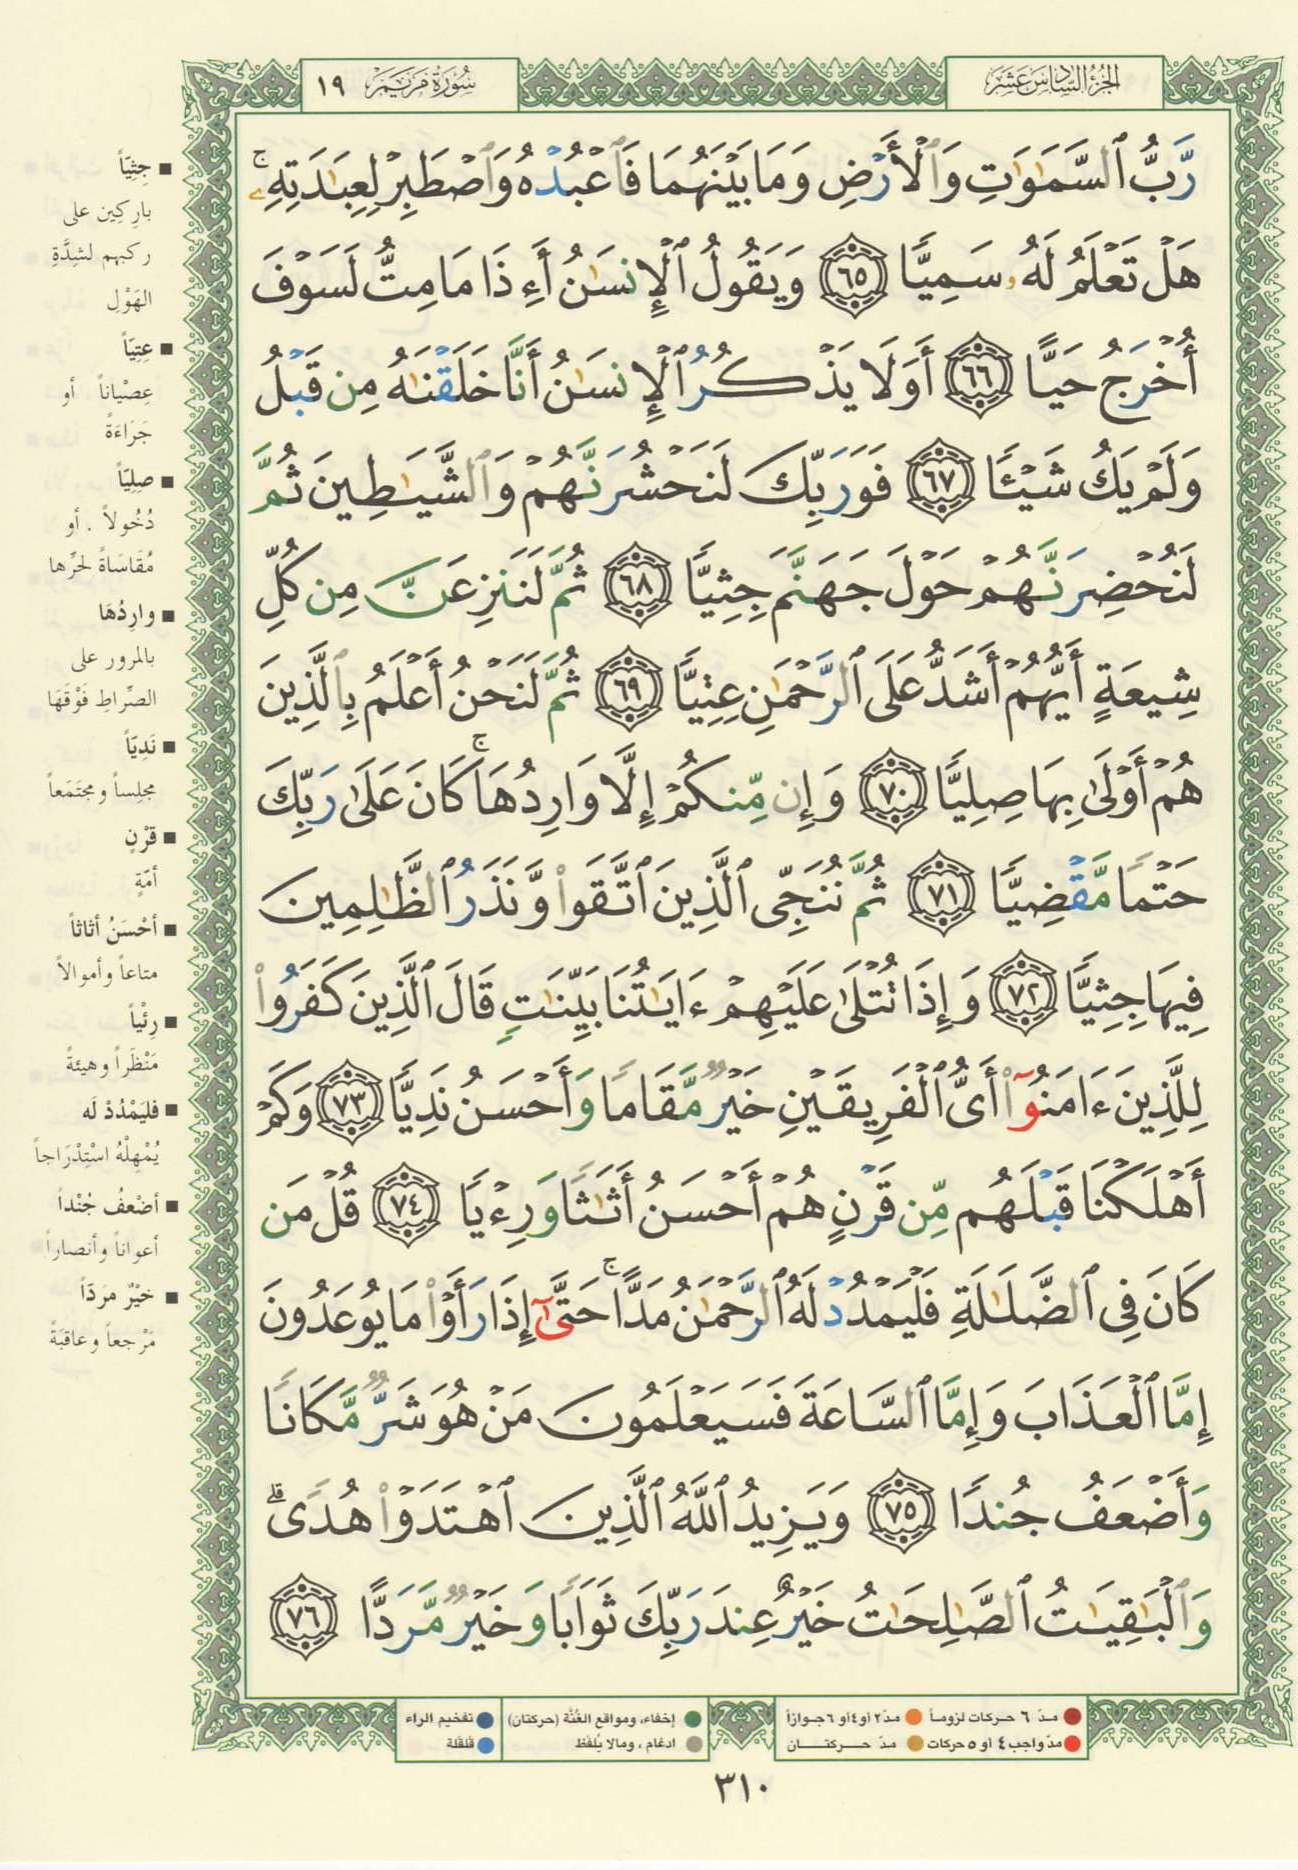 الجزء السادس عشر
سورة مريم ١٩
رَّبُّ ٱلسَّمَٰوَٰتِ وَٱلْأَرْضِ وَمَا بَيْنَهُمَا فَٱعْبُدْهُ وَٱصْطَبِرْ لِعِبَٰدَتِهِۦ ۚ
هَلْ تَعْلَمُ لَهُۥ سَمِيًّا ٦٥ وَيَقُولُ ٱلْإِنسَٰنُ أَءِذَا مَا مِتُّ لَسَوْفَ
أُخْرَجُ حَيًّا ٦٦ أَوَلَا يَذْكُرُ ٱلْإِنسَٰنُ أَنَّا خَلَقْنَٰهُ مِن قَبْلُ
وَلَمْ يَكُ شَيْـًٔا ٦٧ فَوَرَبِّكَ لَنَحْشُرَنَّهُمْ وَٱلشَّيَٰطِينَ ثُمَّ
لَنُحْضِرَنَّهُمْ حَوْلَ جَهَنَّمَ جِثِيًّا ٦٨ ثُمَّ لَنَنزِعَنَّ مِن كُلِّ
شِيعَةٍ أَيُّهُمْ أَشَدُّ عَلَى ٱلرَّحْمَٰنِ عِتِيًّا ٦٩ ثُمَّ لَنَحْنُ أَعْلَمُ بِٱلَّذِينَ
هُمْ أَوْلَىٰ بِهَا صِلِيًّا ٧٠ وَإِن مِّنكُمْ إِلَّا وَارِدُهَا ۚ كَانَ عَلَىٰ رَبِّكَ
حَتْمًا مَّقْضِيًّا ٧١ ثُمَّ نُنَجِّى ٱلَّذِينَ ٱتَّقَوا۟ وَّنَذَرُ ٱلظَّٰلِمِينَ
فِيهَا جِثِيًّا ٧٢ وَإِذَا تُتْلَىٰ عَلَيْهِمْ ءَايَٰتُنَا بَيِّنَٰتٍ قَالَ ٱلَّذِينَ كَفَرُوا۟
لِلَّذِينَ ءَامَنُوٓا۟ أَىُّ ٱلْفَرِيقَيْنِ خَيْرٌ مَّقَامًا وَأَحْسَنُ نَدِيًّا ٧٣ وَكَمْ
أَهْلَكْنَا قَبْلَهُم مِّن قَرْنٍ هُمْ أَحْسَنُ أَثَٰثًا وَرِءْيًا ٧٤ قُلْ مَن
كَانَ فِى ٱلضَّلَٰلَةِ فَلْيَمْدُدْ لَهُ ٱلرَّحْمَٰنُ مَدًّا ۚ حَتَّىٰٓ إِذَا رَأَوْا۟ مَا يُوعَدُونَ
إِمَّا ٱلْعَذَابَ وَإِمَّا ٱلسَّاعَةَ فَسَيَعْلَمُونَ مَنْ هُوَ شَرٌّ مَّكَانًا
وَأَضْعَفُ جُندًا ٧٥ وَيَزِيدُ ٱللَّهُ ٱلَّذِينَ ٱهْتَدَوْا۟ هُدًى ۗ
وَٱلْبَٰقِيَٰتُ ٱلصَّٰلِحَٰتُ خَيْرٌ عِندَ رَبِّكَ ثَوَابًا وَخَيْرٌ مَّرَدًّا ٧٦
■ جِثِيّاً
بارِكِين على
ركبهم لشِدَّةِ
الهَوْل
■ عِتِيّاً
عِصْياناً أو
جَرَاءَةً
■ صِلِيّاً
دُخُولاً . أو
مُقَاسَاةً لحَرِّها
■ وارِدُهَا
بالمرور على
الصِّراطِ فَوْقَهَا
■ نَدِيّاً
مجلِساً ومجتَمَعاً
■ قرْنٍ
أمّةٍ
■ أحْسَنُ أثاثاً
متاعاً وأموالاً
■ رِئْياً
مَنْظَراً وهيئةً
■ فليَمْدُدْ لَه
يُمْهِلْهُ اسْتِدْرَاجاً
■ أضْعفُ جُنْداً
أعواناً وأنصاراً
■ خيْرٌ مرَدّاً
مَرْجعاً وعاقبَةً
مدّ ٦ حركات لزوماً ● مدّ ٢ أو ٤ أو ٦ جوازاً
مدّ واجب ٤ أو ٥ حركات ● مدّ حركتان
إخفاء، ومواقع الغُنَّة (حركتان) ● تفخيم الراء
ادغام ، ومالا يُلفَظ ● قلقلة
٣١٠